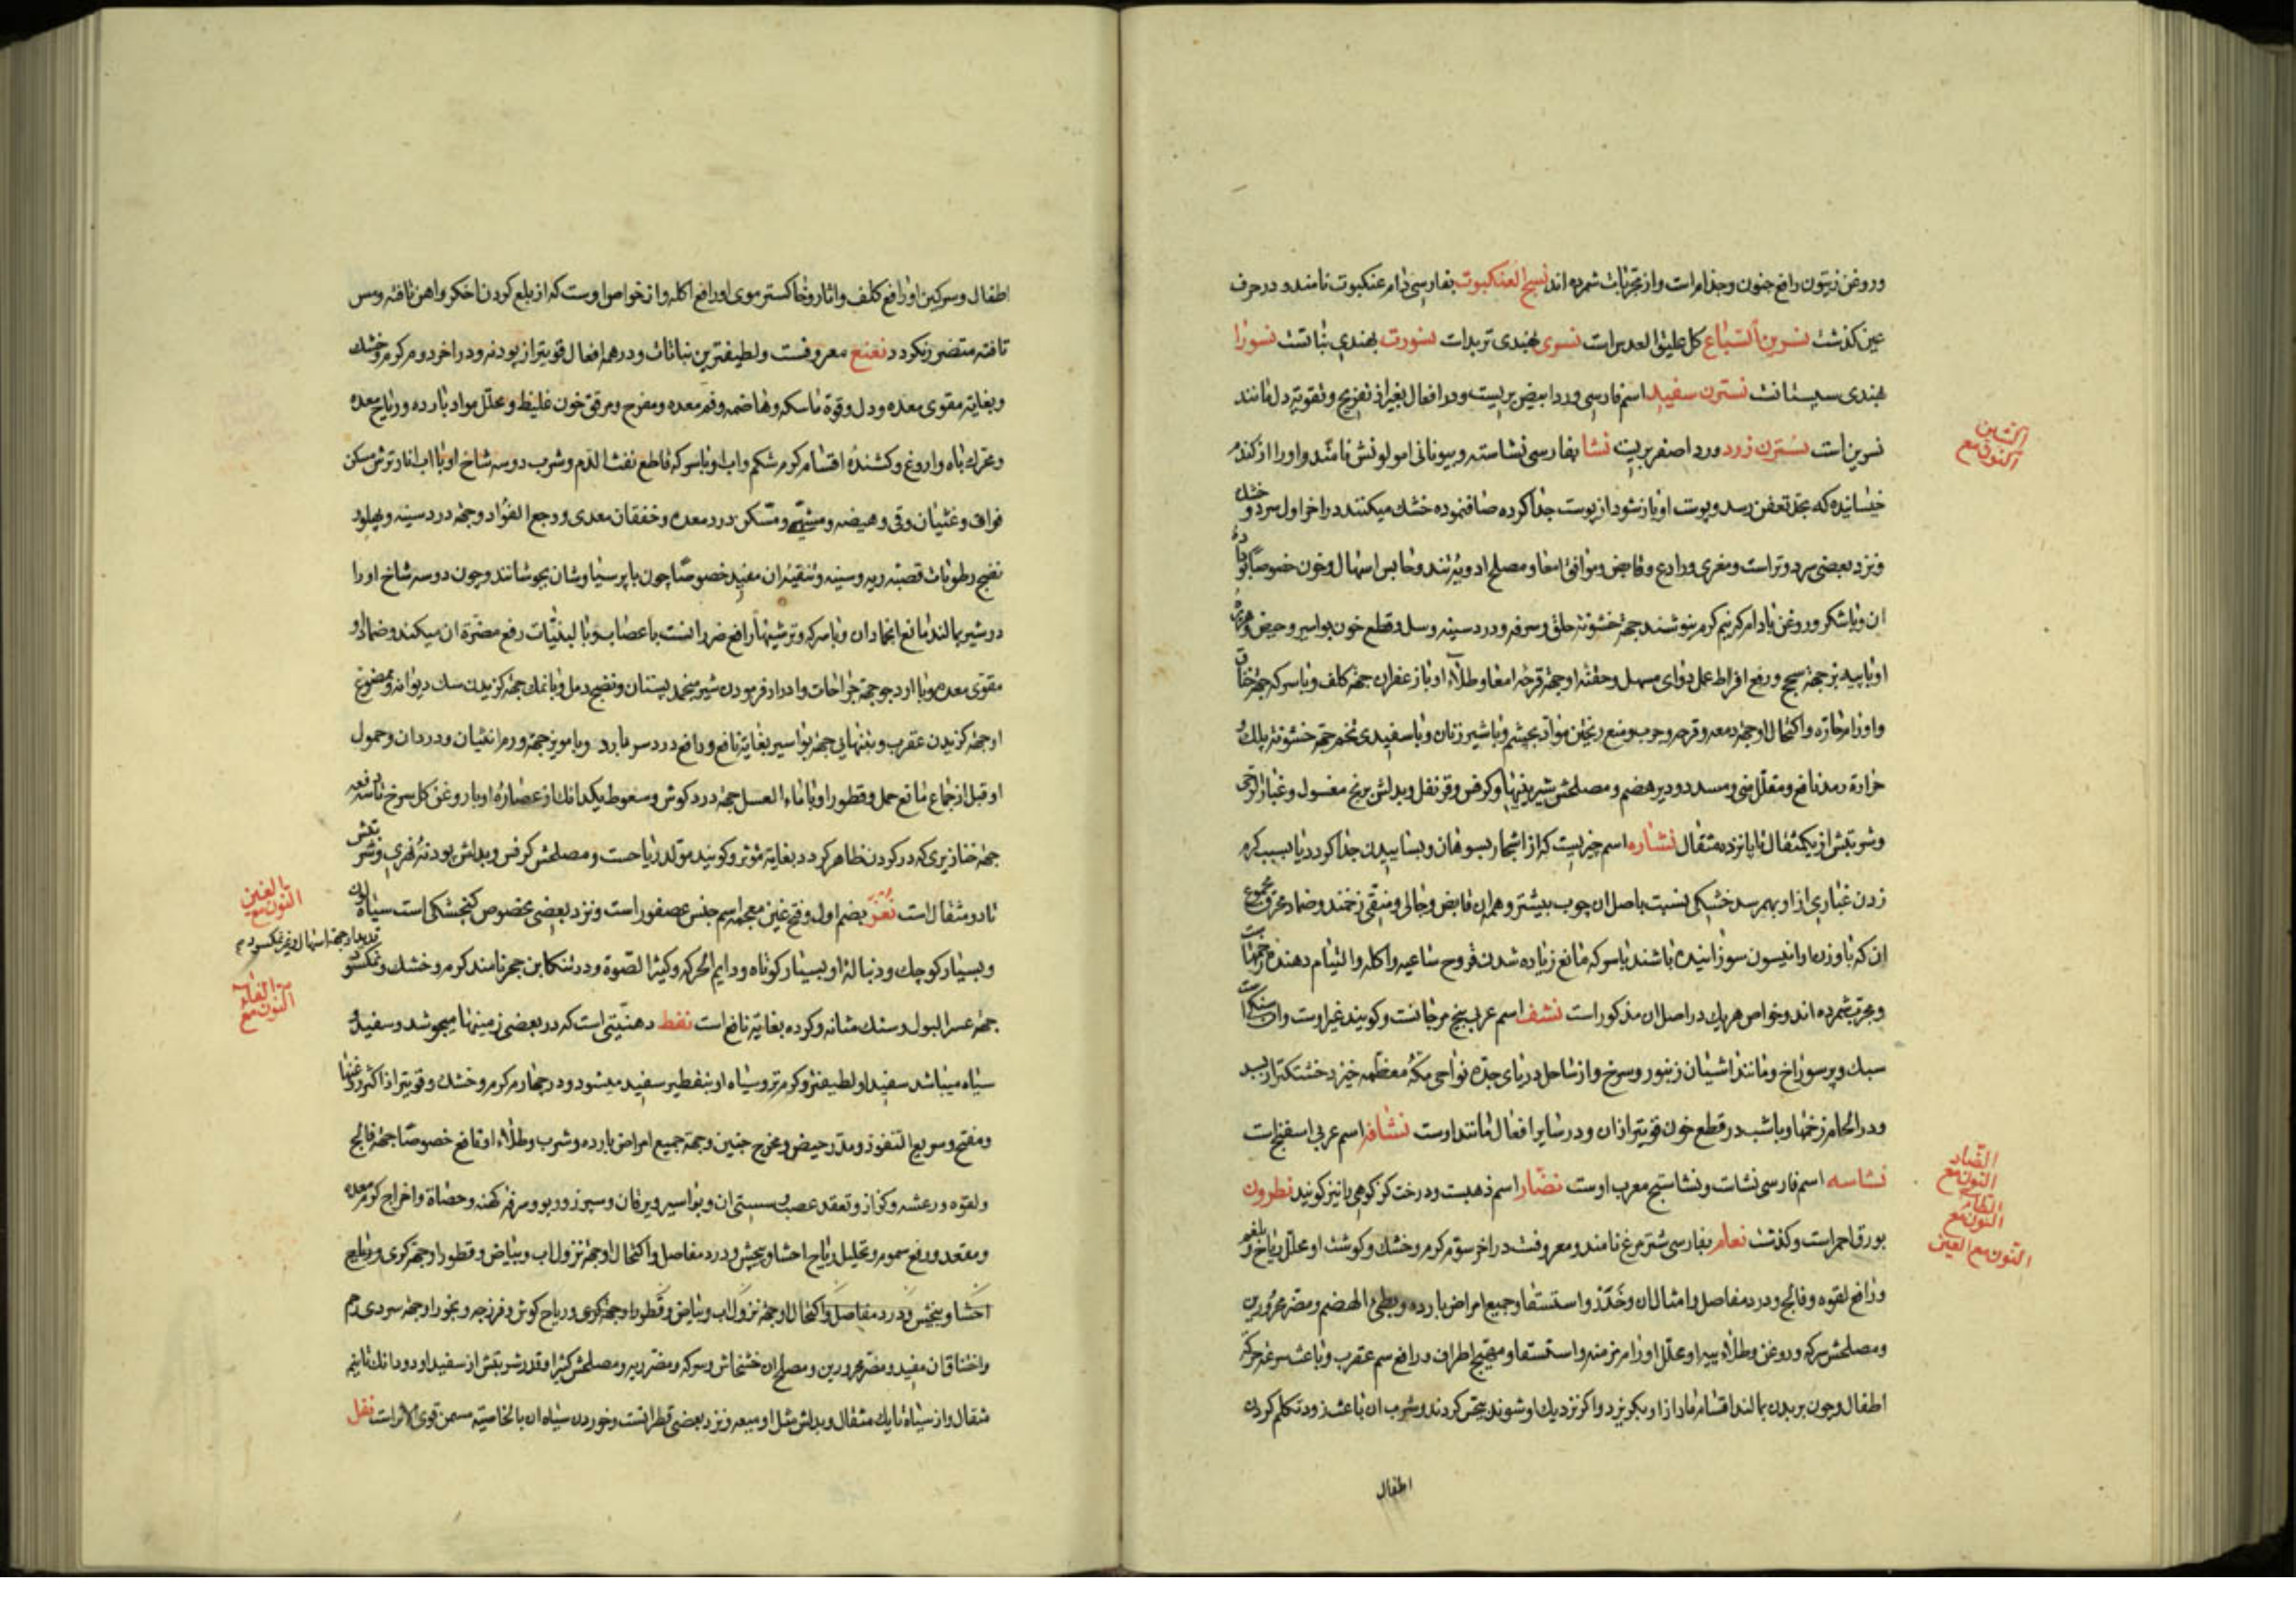 وروغن زیتون رافع جنون وجذام است واز مجربات شمرده اند نسج العنکبوت بفارسی دام عنکبوت نامند و در حرف
عین کذشت نسرین السباع کل علیق العدس است نسری بهندی تربد است نسورت بهندی نباتست نسورا
هندی سپستانست نسترن سفید اسم فارسی ورد ابیض بریست ودر افعال بغیر از تفریح وتقویة دل مانند
نسرین است نسترن زرد ورد اصفر بریست نشا بفارسی نشاسته و بیونانی امولونش نامند و او را از کندم
خیسانیده که بحد تعفن رسد و پوست او باز شود از پوست جدا کرده صاف نموده خشک میکنند در اخر اول سرد و خشک
ونزد بعضی سرد وتر است ومغری ورادع وقابض وموافق امعا ومصلح ادویه تند وحابس اسهال وخون خصوصا بو داده
ان وبا شکر وروغن بادام کرنیم کرم بنوشند جهة خشونة حلق وسرفه ودرد سینه وسل وقطع خون بواسیر وحیض وهریه
او با پیه بز جهة سحج ورفع افراط عمل دوای مسهل وحقنه او جهة قرحه امعا وطلاء او با زعفران جهة کلف وبا سرکه جهة خفقان
واورام حاره واکتحال او جهة دمعه وقرحه وجرب ومنع ریختن مواد بچشم وبا شیر زنان وبا سفیدی تخم جهة خشونة پلک و
حرارة رمد نافع ومقلل منی ومسدد ودیر هضم ومصلحش شیرینیها وکرفس وقرنفل وبدلش برنج مغسول وغبار الرحی
وشربتش از یکمثقال تا پانزده مثقال نشاره اسم چیزیست که از اشجار بسوهان وبساییدن جدا کردد یا بسبب کرم
زدن غباری از او بهم رسد خشکی نسبت باصل ان چوب بیشتر وهمه ان قابض وجالی ومنقی زخمند وضماد محرق مجموع
ان که با وزن او انیسون سوزانیده باشند با سرکه مانع زیاده شدن قروح ساعیه واکله والتیام دهنده جراحتها
ومجرب شمرده اند وخواص هریک در اصل ان مذکور است نشف اسم عربی بیخ مرجانست وکویند غیر اوست وان سنکیست
سبک وپر سوراخ ومانند اشیان زنبور وسرخ واز ساحل دریای جده نواحی مکه معظمه خیزد خشکتر از بسد
ودر الحام زخمها وباشیدن در قطع خون قویتر از ان ودر سایر افعال مانند اوست نشافه اسم عربی اسفنج است
نشاسه اسم فارسی نشاست ونشاستج معرب اوست نضار اسم ذهبست ودرخت کز کوهی را نیز کویند نطرون
بورق احمر است وکذشت نعام بفارسی شتر مرغ نامند ومعروفست در اخر سوم کرم وخشک وکوشت او محلل ریاح وبلغم
ورافع لقوه وفالج ودرد مفاصل وامثال ان وخدر واستسقا وجمیع امراض بارده وبطئ الهضم ومضر محرورین
ومصلحش سرکه وروغن وطلاء پیه او محلل اورام مزمنه واستسقا ومهیج اطراف ورافع سم عقرب وباعث سرعة حرکة
اطفال وچون بر بدن بمالند اقسام مار از او بکریزد واکر نزدیک او شوند بیحس کردند وشرب ان باعث زود تکلم کردن
اطفال
الشین
النون مع
الضاد
النون مع
الطاء
النون مع
النون مع العین
اطفال وسرکین او رافع کلف واثار وخاکستر موی او رافع اکله واز خواص اوست که از بلع کردن اخکر واهن تافته ومس
تافته متضرر نکردد نعنع معروفست ولطیفترین نباتات ودر همه افعال قویتر از پودنه ودر اخر دوم کرم وخشک
وبغایة مقوی معده ودل وقوة ماسکه وهاضمه وفم معده ومفرح ومرقق خون غلیظ ومحلل مواد بارده وریاح معده
ومحرک باه واروغ وکشنده اقسام کرم شکم واب او با سرکه قاطع نفث الدم وشرب دو سه شاخ او با اب انار ترش مسکن
فواق وغثیان وقی وهیضه ومشهی ومسکن درد معده وخفقان معدی ووجع الفؤاد وجهة درد سینه وپهلو و
نضج رطوبات قصبه ریه وسینه وتنقیه ان مفید خصوصا چون با پرسیاوشان بجوشانند وچون دو سه شاخ او را
در شیر بمالند مانع انجماد ان وبا سرکه وترشیها رافع ضرر انست باعصاب وبا لبنیات رفع مضرة ان میکند وضماد او
مقوی معده وبا ارد جو جهة جراحات وادرار فرمودن شیر منجمد پستان ونضج دمل وبا نمک جهة کزیدن سک دیوانه وممضوغ
او جهة کزیدن عقرب وبتنهایی جهة بواسیر بغایة نافع ورافع درد سر بارد وبا مویز جهة ورم انثیان ودرد ان وحمول
او قبل از جماع مانع حمل وقطور او با ماء العسل جهة درد کوش وسعوط یکدانک از عصاره او با روغن کل سرخ تا سه دفعه
جهة خنازیری که در کردن ظاهر کردد بغایة مؤثر وکویند مولد ریاحست ومصلحش کرفس وبدلش پودنه نهری وشربتش
تا دو مثقال است نغر بضم اول وفتح غین معجمه اسم جنس عصفور است ونزد بعضی مخصوص کنجشکی است سیاه رنک
وبسیار کوچک ودنباله او بسیار کوتاه ودایم الحرکه وکثیر الصوة ودر تنکابن جرجر نامند کرم وخشک ونمکسود
جهة عسر البول وسنک مثانه وکرده بغایة نافع است نفط دهنیتی است که در بعضی زمینها میجوشد وسفید و
سیاه میباشد سفید او لطیفتر وکرمتر وسیاه او بتقطیر سفید میشود ودر چهارم کرم وخشک وقویتر از اکثر روغنها
ومفتح وسریع النفوذ ومدر حیض ومخرج جنین وجهة جمیع امراض بارده وشرب وطلاء او نافع خصوصا جهة فالج
ولقوه ورعشه وکزاز وتعقد عصب وسستی ان وبواسیر ویرقان وسپرز وربو وسرفه کهنه وحصاة واخراج کرم معده
ومقعد ورفع سموم وتحلیل ریاح احشا وپیچش ودرد مفاصل واکتحال او جهة نزول اب وبیاض وقطور او جهة کری وریاح
احشا وپیچش ودرد مفاصل واکتحال او جهة نزول اب وبیاض وقطور او جهة کری وریاح کوش وفرزجه وبخور او جهة سردی رحم
واختناق ان مفید ومضر محرورین ومصلح ان خشخاش وسرکه ومضر ریه ومصلحش کتیرا وقدر شربتش از سفید او دو دانک تا نیم
مثقال واز سیاه تا یک مثقال وبدلش مثل او میعه ونزد بعضی قطرانست وخوردن سیاه ان بالخاصیه مسمن قوی الاثر است نفل
الغین
النون مع
قدید او جهة اسهال
الفاء
النون مع